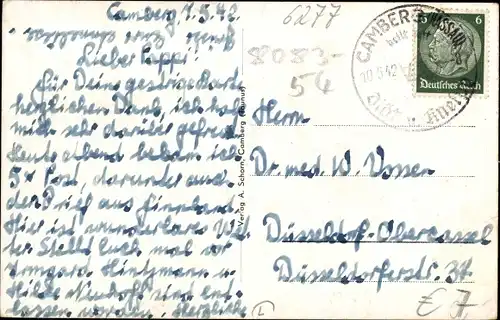 Camberg, 7.5.42.
Lieber Pappi!
Für Deine gestrige Karte
herzlichen Dank, ich hab
mich sehr darüber gefreut.
Heut abend bekam ich
5x Post, darunter auch
der Brief aus Finnland.
Hier ist wunderbares Wet-
ter. Stellt Euch mal vor
Irmgard Hintzmann u.
Hilde Neuhoff sind ent-
lassen worden. Herzliche
Verlag A. Schorn, Camberg (Taunus)
6277
8083-
54
CAMBERG
NASSAU
10.5.42
6
6
Deutsches Reich
Herrn
Dr. med. W. Vossen
Düsseldorf-Obercassel
Düsseldorferstr. 37
L
€ 7